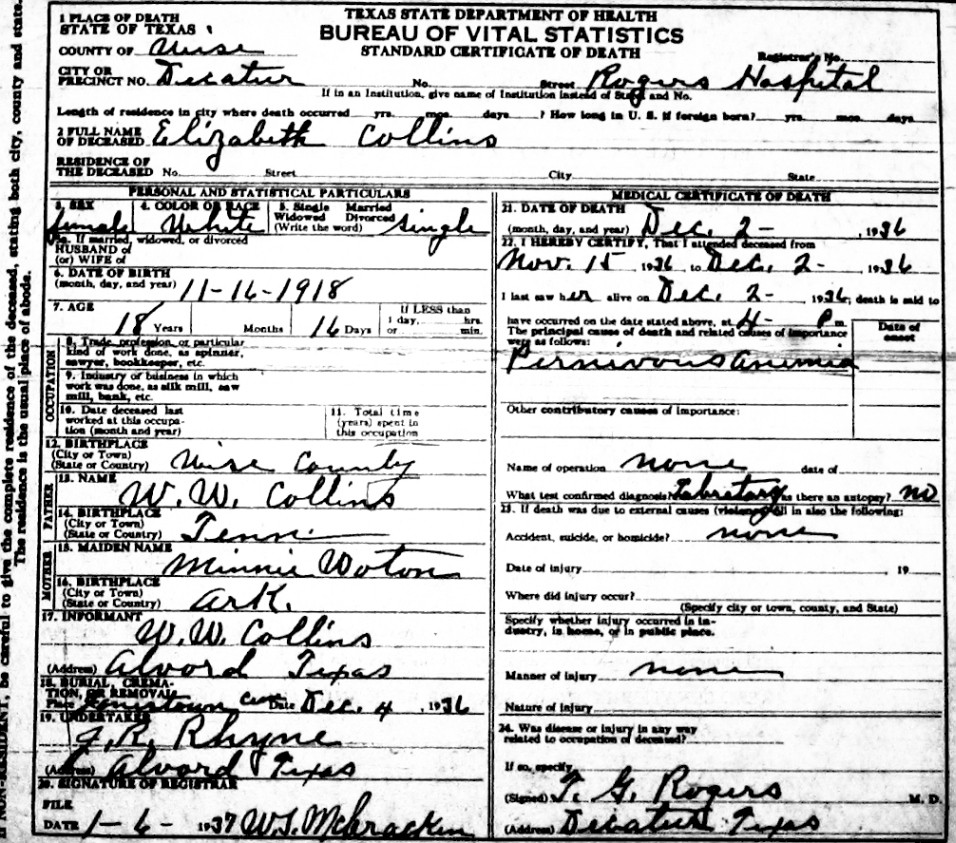 TEXAS STATE DEPARTMENT OF HEALTH
BUREAU OF VITAL STATISTICS
STANDARD CERTIFICATE OF DEATH
1 PLACE OF DEATH
STATE OF TEXAS
COUNTY OF Wise
Registrar's No.
CITY OR
PRECINCT NO. Decatur No. Street Rogers Hospital
If in an Institution, give name of Institution instead of Street and No.
Length of residence in city where death occurred yrs. mos. days ? How long in U. S. if foreign born? yrs. mos. days
2 FULL NAME
OF DECEASED Elizabeth Collins
RESIDENCE OF
THE DECEASED No. Street City State
PERSONAL AND STATISTICAL PARTICULARS
3. SEX female 4. COLOR OR RACE White 5. Single Married Widowed Divorced (Write the word) single
5a. If married, widowed, or divorced
HUSBAND of
(or) WIFE of
6. DATE OF BIRTH
(month, day, and year) 11-16-1918
7. AGE 18 Years Months 16 Days If LESS than 1 day, hrs. or min.
OCCUPATION
8. Trade, profession, or particular
kind of work done, as spinner,
sawyer, bookkeeper, etc.
9. Industry of business in which
work was done, as silk mill, saw
mill, bank, etc.
10. Date deceased last
worked at this occupa-
tion (month and year)
11. Total time
(years) spent in
this occupation
12. BIRTHPLACE
(City or Town)
(State or Country) Wise County
FATHER
13. NAME W. W. Collins
14. BIRTHPLACE
(City or Town)
(State or Country) Tenn
MOTHER
15. MAIDEN NAME Minnie Woton
16. BIRTHPLACE
(City or Town)
(State or Country) Ark.
17. INFORMANT W. W. Collins
(Address) Alvord Texas
18. BURIAL, CREMA-
TION, OR REMOVAL
Place Cem Date Dec. 4, 1936
19. UNDERTAKER J. R. Rhyne
(Address) Alvord Texas
20. SIGNATURE OF REGISTRAR
FILE
DATE 1-6-1937 W.S. McCracken
MEDICAL CERTIFICATE OF DEATH
21. DATE OF DEATH
(month, day, and year) Dec. 2-, 1936
22. I HEREBY CERTIFY, That I attended deceased from
Nov. 15 1936 to Dec. 2-, 1936
I last saw her alive on Dec. 2-, 1936; death is said to
have occurred on the date stated above, at 4- P m.
The principal cause of death and related causes of importance
were as follows:
Date of
onset
Pernivous anemia
Other contributory causes of importance:
Name of operation none date of
What test confirmed diagnosis? Was there an autopsy? no
23. If death was due to external causes (violence) fill in also the following:
Accident, suicide, or homicide? none
Date of injury , 19
Where did injury occur?
(Specify city or town, county, and State)
Specify whether injury occurred in in-
dustry, in home, or in public place.
Manner of injury none
Nature of injury
24. Was disease or injury in any way
related to occupation of deceased?
If so, specify
(Signed) T. G. Rogers M. D.
(Address) Decatur Texas
If NON-RESIDENT, be careful to give the complete residence of the deceased, stating both city, county and state.
The residence is the usual place of abode.